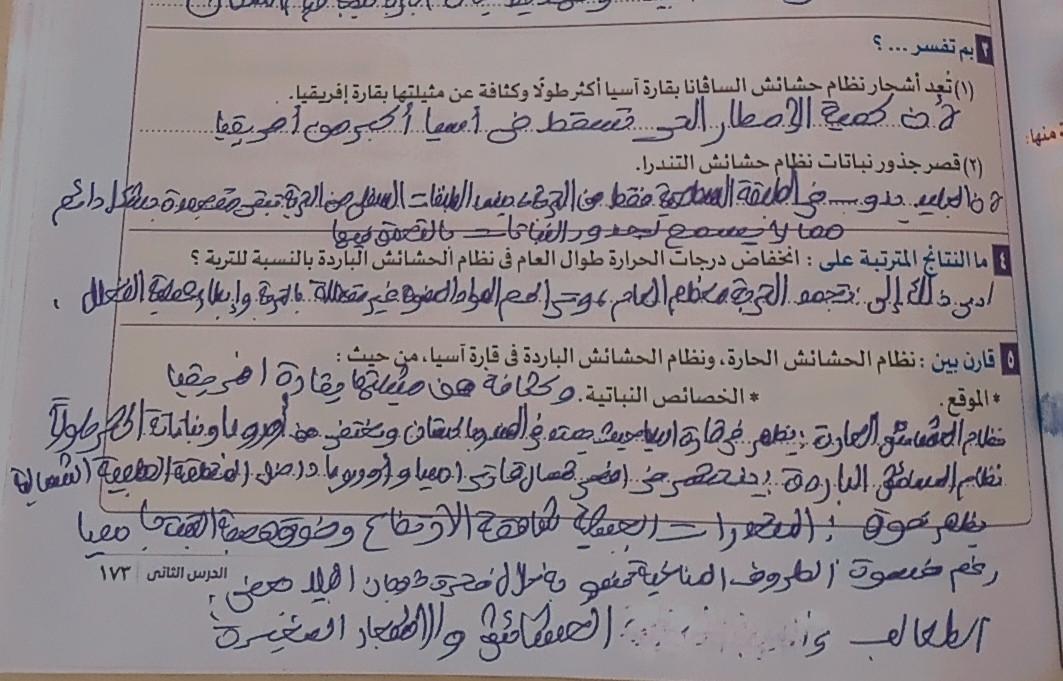 ٣ بم تفسر ... ؟
(١) تُعد أشجار نظام حشائش الساڤانا بقارة آسيا أكثر طولًا وكثافة عن مثيلتها بقارة إفريقيا.
لأن كمية الأمطار التى تسقط فى آسيا أكبر من أفريقيا
منها:
(٢) قصر جذور نباتات نظام حشائش التندرا.
لأن الجليد يذوب فى الطبقة السطحية فقط من التربة، بينما الطبقات السفلى من التربة تبقى متجمدة بشكل دائم
مما لا يسمح لجذور النباتات بالتعمق فيها
٤ ما النتائج المترتبة على : انخفاض درجات الحرارة طوال العام فى نظام الحشائش الباردة بالنسبة للتربة ؟
أدى ذلك إلى تجمد التربة معظم العام، المواد العضوية غير متحللة بالتربة وإبطاء عملية التحلل .
٥ قارن بين : نظام الحشائش الحارة، ونظام الحشائش الباردة فى قارة آسيا، من حيث :
وكثافة عن مثيلتها بقارة أفريقيا
* الموقع. * الخصائص النباتية.
نظام الحشائش الحارة : يظهر فى قارة آسيا حيث يمتد فى الهند وباكستان ويختفى من أوروبا ونباتاته أكثر طولاً
نظام الحشائش الباردة : ينحصر فى أقصى شمال قارتى آسيا وأوروبا داخل المنطقة القطبية الشمالية
يظهر نحوه : المنحدرات الجبلية شاهقة الارتفاع وفوق هضبة التبت بآسيا
رغم قسوة الظروف المناخية تنمو خلال فترة ذوبان الجليد بعض
الدرس الثانى ١٧٣
الطحالب الحشائش والأشجار الصغيرة